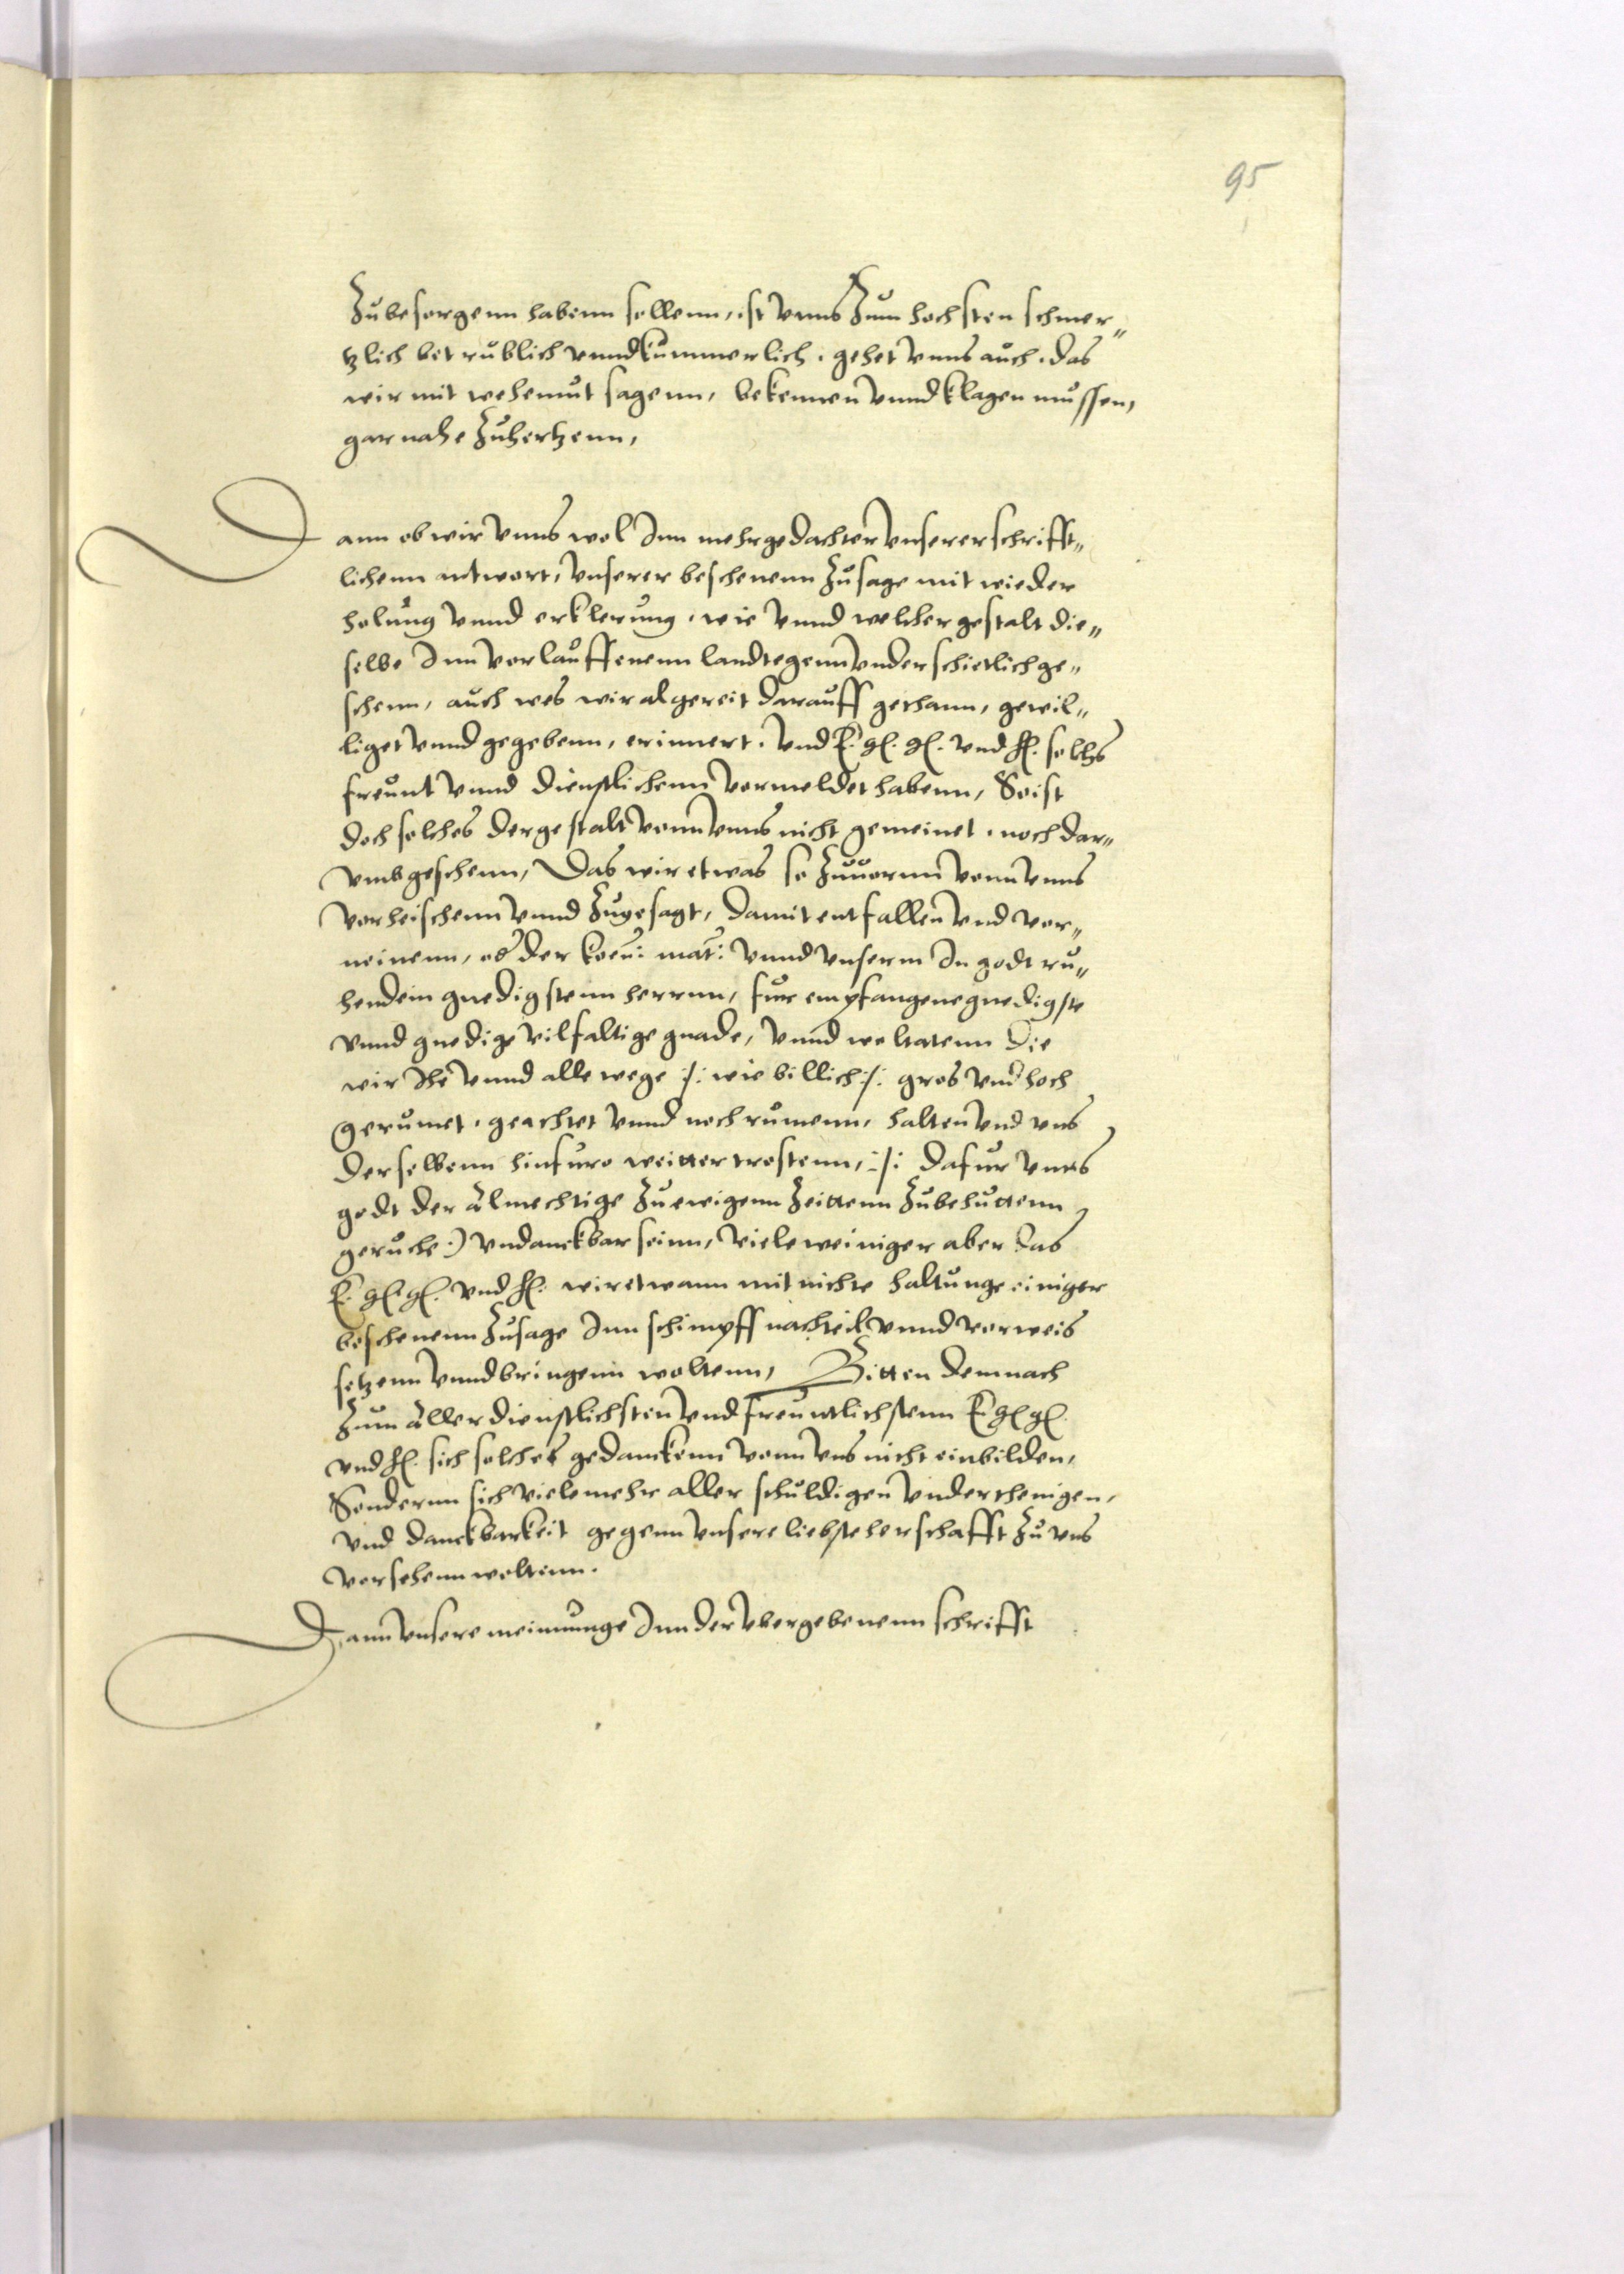 95
Zubesorgenn habenn sollenn, ist vnns Zum hochsten schmer„
tzlich betrublich vnnd kummerlich. gehet vnns auch. das
wir mit wehemut sagenn, bekennen vnnd klagen mussen,
gar nahe Zuhertzenn,
Dann ob wir vnns wol Inn mehrgedachter vnserer schrifft„
lichenn antwort, vnserer beschenenn Zusage mit wieder
holung vnnd erklerung. wie vnnd welcher gestalt die„
selbe Inn vorlauffenenn landtegenn vnderschietlich ge„
schenn, auch wes wir algereit darauff gethann, gewil„
liget vnnd gegebenn, erinnert. vnd E. gl. gl. vnd fl. solchs
freunt vnnd dienstlichenn vormeldet habenn, So ist
doch solches dergestalt vonn vnns nicht gemeinet. noch dar„
vmb geschenn, Das wir etwas so Zuuornn vonn vnns
vorheischenn vnnd Zugesagt, damit entfallen vnd vor„
neinenn, od der koen: mat: vnnd vnserm In godt ru„
hendem gnedigstenn herrnn, fur empfangene gnedigste
vnnd gnedige vilfaltige gnade, vnnd woltatenn Die
wir Ihe vnnd alle wege :/: wie billich :/: gros vnd hoch
gerumet. geachtet vnnd noch rumenn, halten vnd vns
derselbenn hinfuro weitter trostenn, :/: dafur vnns
godt der Almechtige Zu ewigenn Zeittenn Zubehuttenn
geruche :) vndanckbar seinn, viele weiniger aber das
E. gl. gl. vnd fl. wir etwann mit nichte haltunge einiger
beschenenn Zusage Inn schimpff nachteil vnnd vorweis
setzenn vnnd bringenn woltenn, Bitten demnach
Zum Aller dienstlichsten vnd freuntlichstenn E gl gl.
vnd fl. sich solches gedanckenn vonn vns nicht einbilden,
Sondernn sich vielemehr aller schuldigen vnderthenigen,
vnd danckbarkeit gegenn vnsere liebste herschafft Zu vns
vorsehenn woltenn.
Dann vnsere meinunge Inn der vbergebenenn schrifft